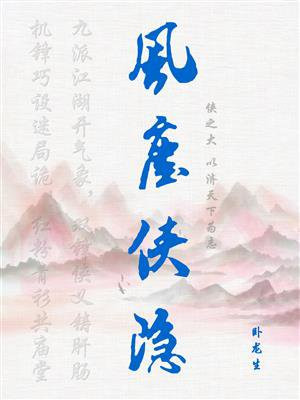 風塵侠隐
侠之大 以济天下为志
九派江湖开气象，双雄侠义铸肝肠
机锋巧设迷局诡 红粉青衫共庙堂
卧龙生